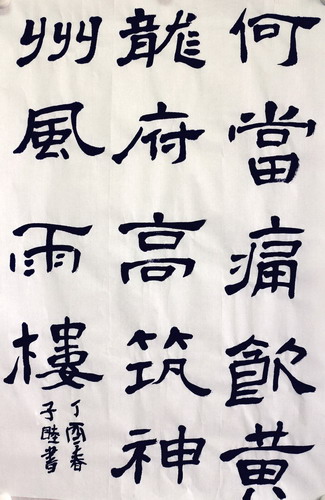 何當痛飲黄
龍府高筑神
州風雨樓
丁酉春
子睦書